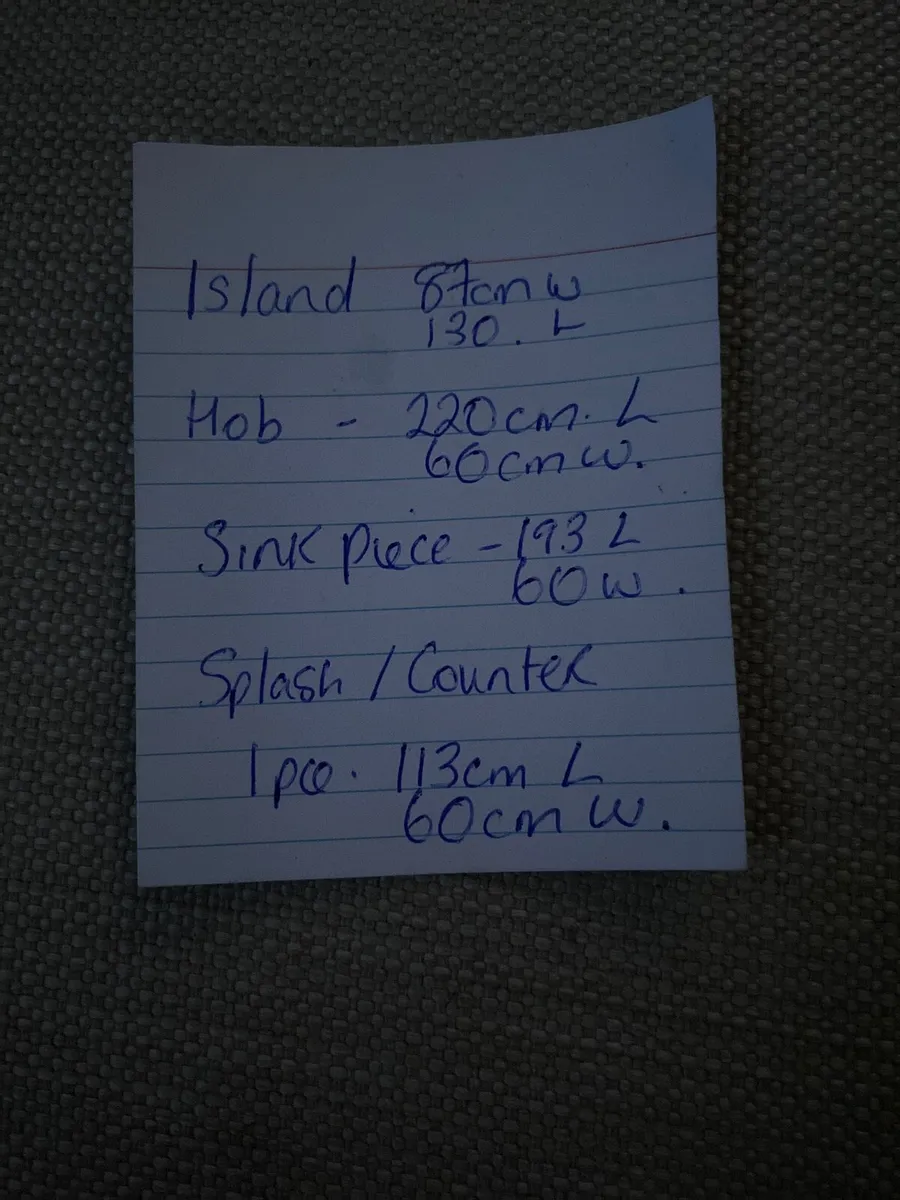 Island 87cm w
130. L
Hob - 220cm. L
60cm w.
Sink piece - 193 L
60 w.
Splash / Counter
1 pce. 113cm L
60cm w.